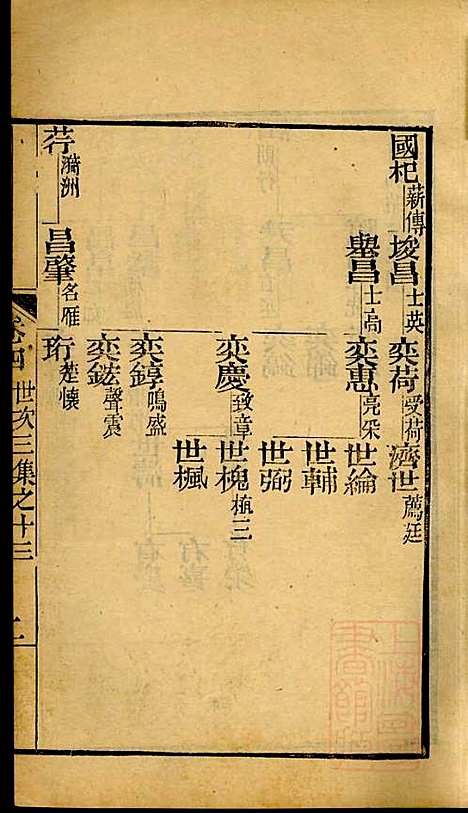 國杞 薪傳 埈昌 士英 奕荷 受荷 濟世 薦廷
舉昌 士高 奕惠 亮采 世綸
世輔
世弼
奕慶 致章 世槐 植三
世楓
奕錞 鳴盛
奕鋐 聲震
荇 漪洲 昌肇 名雁 珩 楚懷
卷四 世次三集之十三